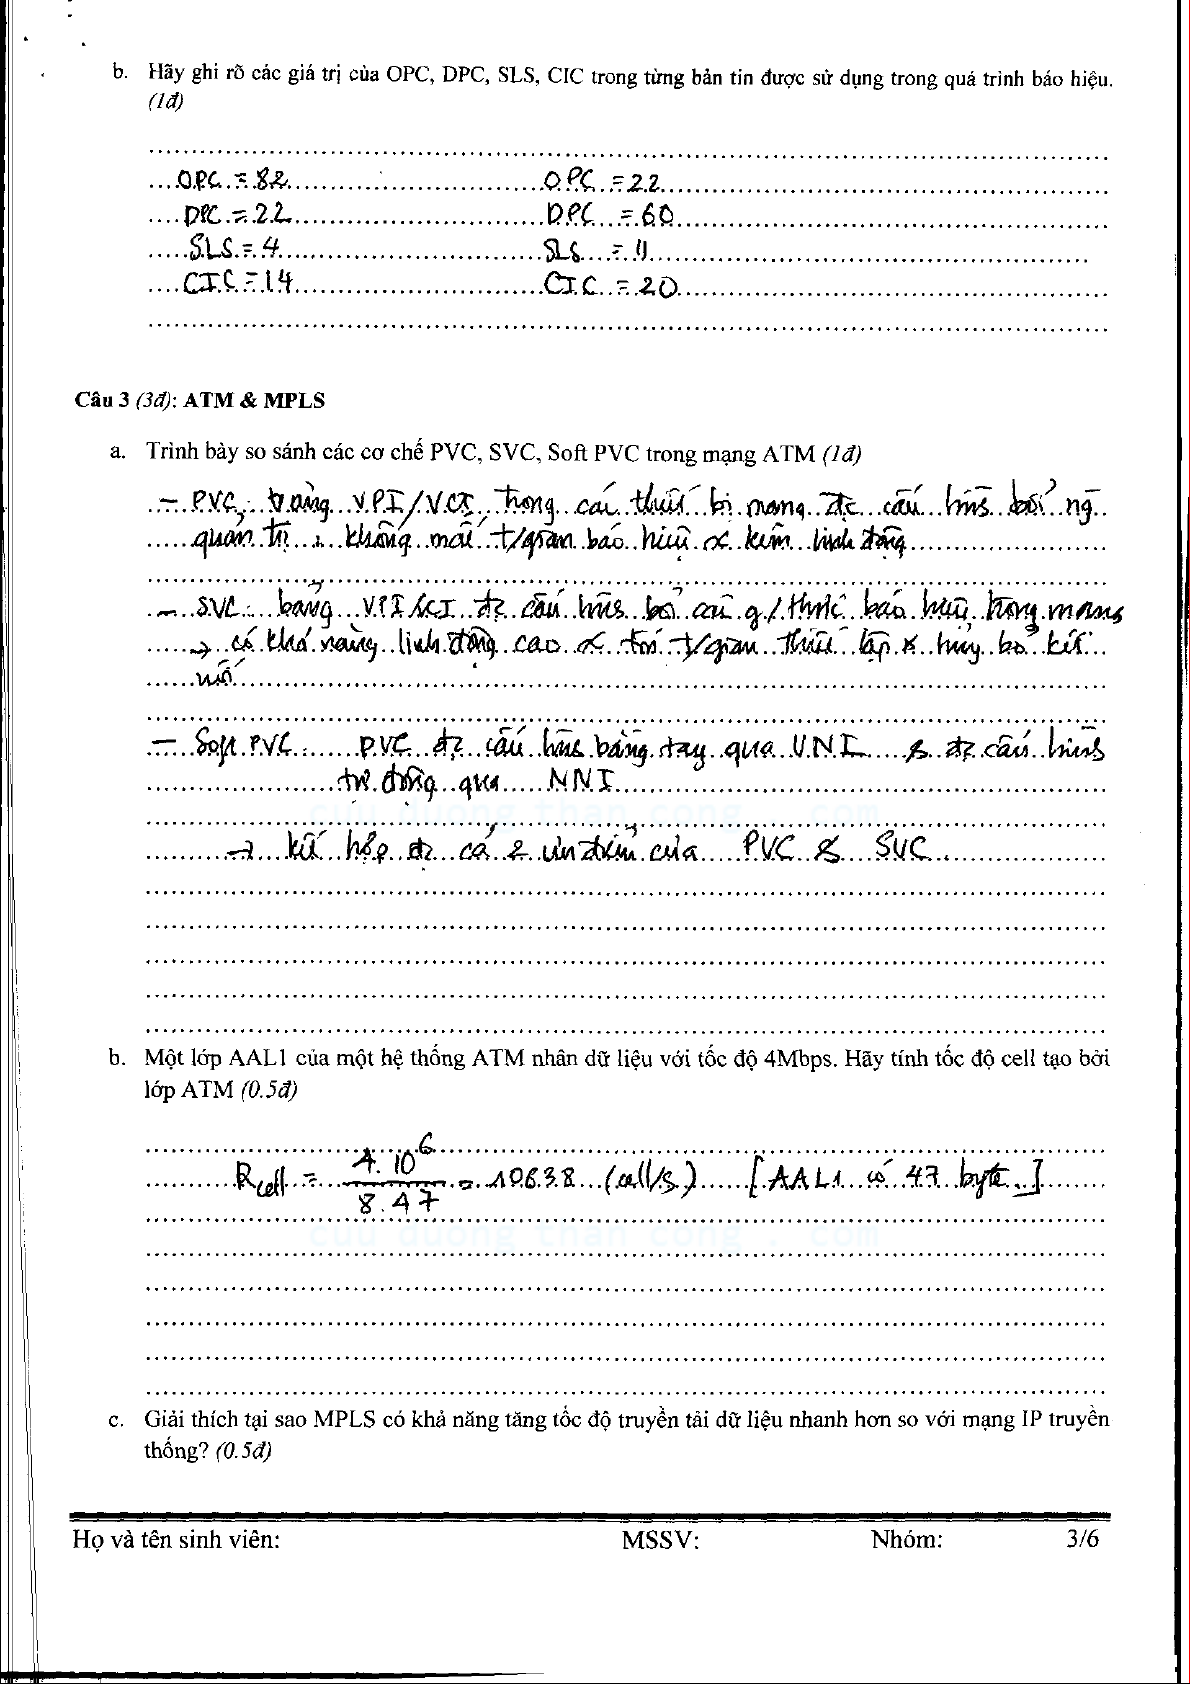 b. Hãy ghi rõ các giá trị của OPC, DPC, SLS, CIC trong từng bản tin được sử dụng trong quá trình báo hiệu.
(1đ)
OPC = 82 OPC = 22
DPC = 22 DPC = 60
SLS = 4 SLS = 11
CIC = 14 CIC = 20
Câu 3 (3đ): ATM & MPLS
a. Trình bày so sánh các cơ chế PVC, SVC, Soft PVC trong mạng ATM (1đ)
- PVC: bảng VPI/VCI trong các thiết bị mạng đc cấu hình bởi ng
quản trị, không mất t/gian báo hiệu & kém linh động
- SVC: bảng VPI/VCI đc cấu hình bởi các g/thức báo hiệu trong mạng
→ có khả năng linh động cao & tốn t/gian thiết lập & hủy bỏ kết
nối
- Soft PVC: PVC đc cấu hình bằng tay qua UNI & đc cấu hình
tự động qua NNI
cuu duong than cong . com
→ kết hợp đc cả 2 ưu điểm của PVC & SVC.
b. Một lớp AAL1 của một hệ thống ATM nhân dữ liệu với tốc độ 4Mbps. Hãy tính tốc độ cell tạo bởi
lớp ATM (0.5đ)
Rcell = 4.10^6 / 8.47 = 10638 (cell/s) [AAL1 có 47 byte]
cuu duong than cong . com
c. Giải thích tại sao MPLS có khả năng tăng tốc độ truyền tải dữ liệu nhanh hơn so với mạng IP truyền
thống? (0.5đ)
Họ và tên sinh viên: MSSV: Nhóm: 3/6